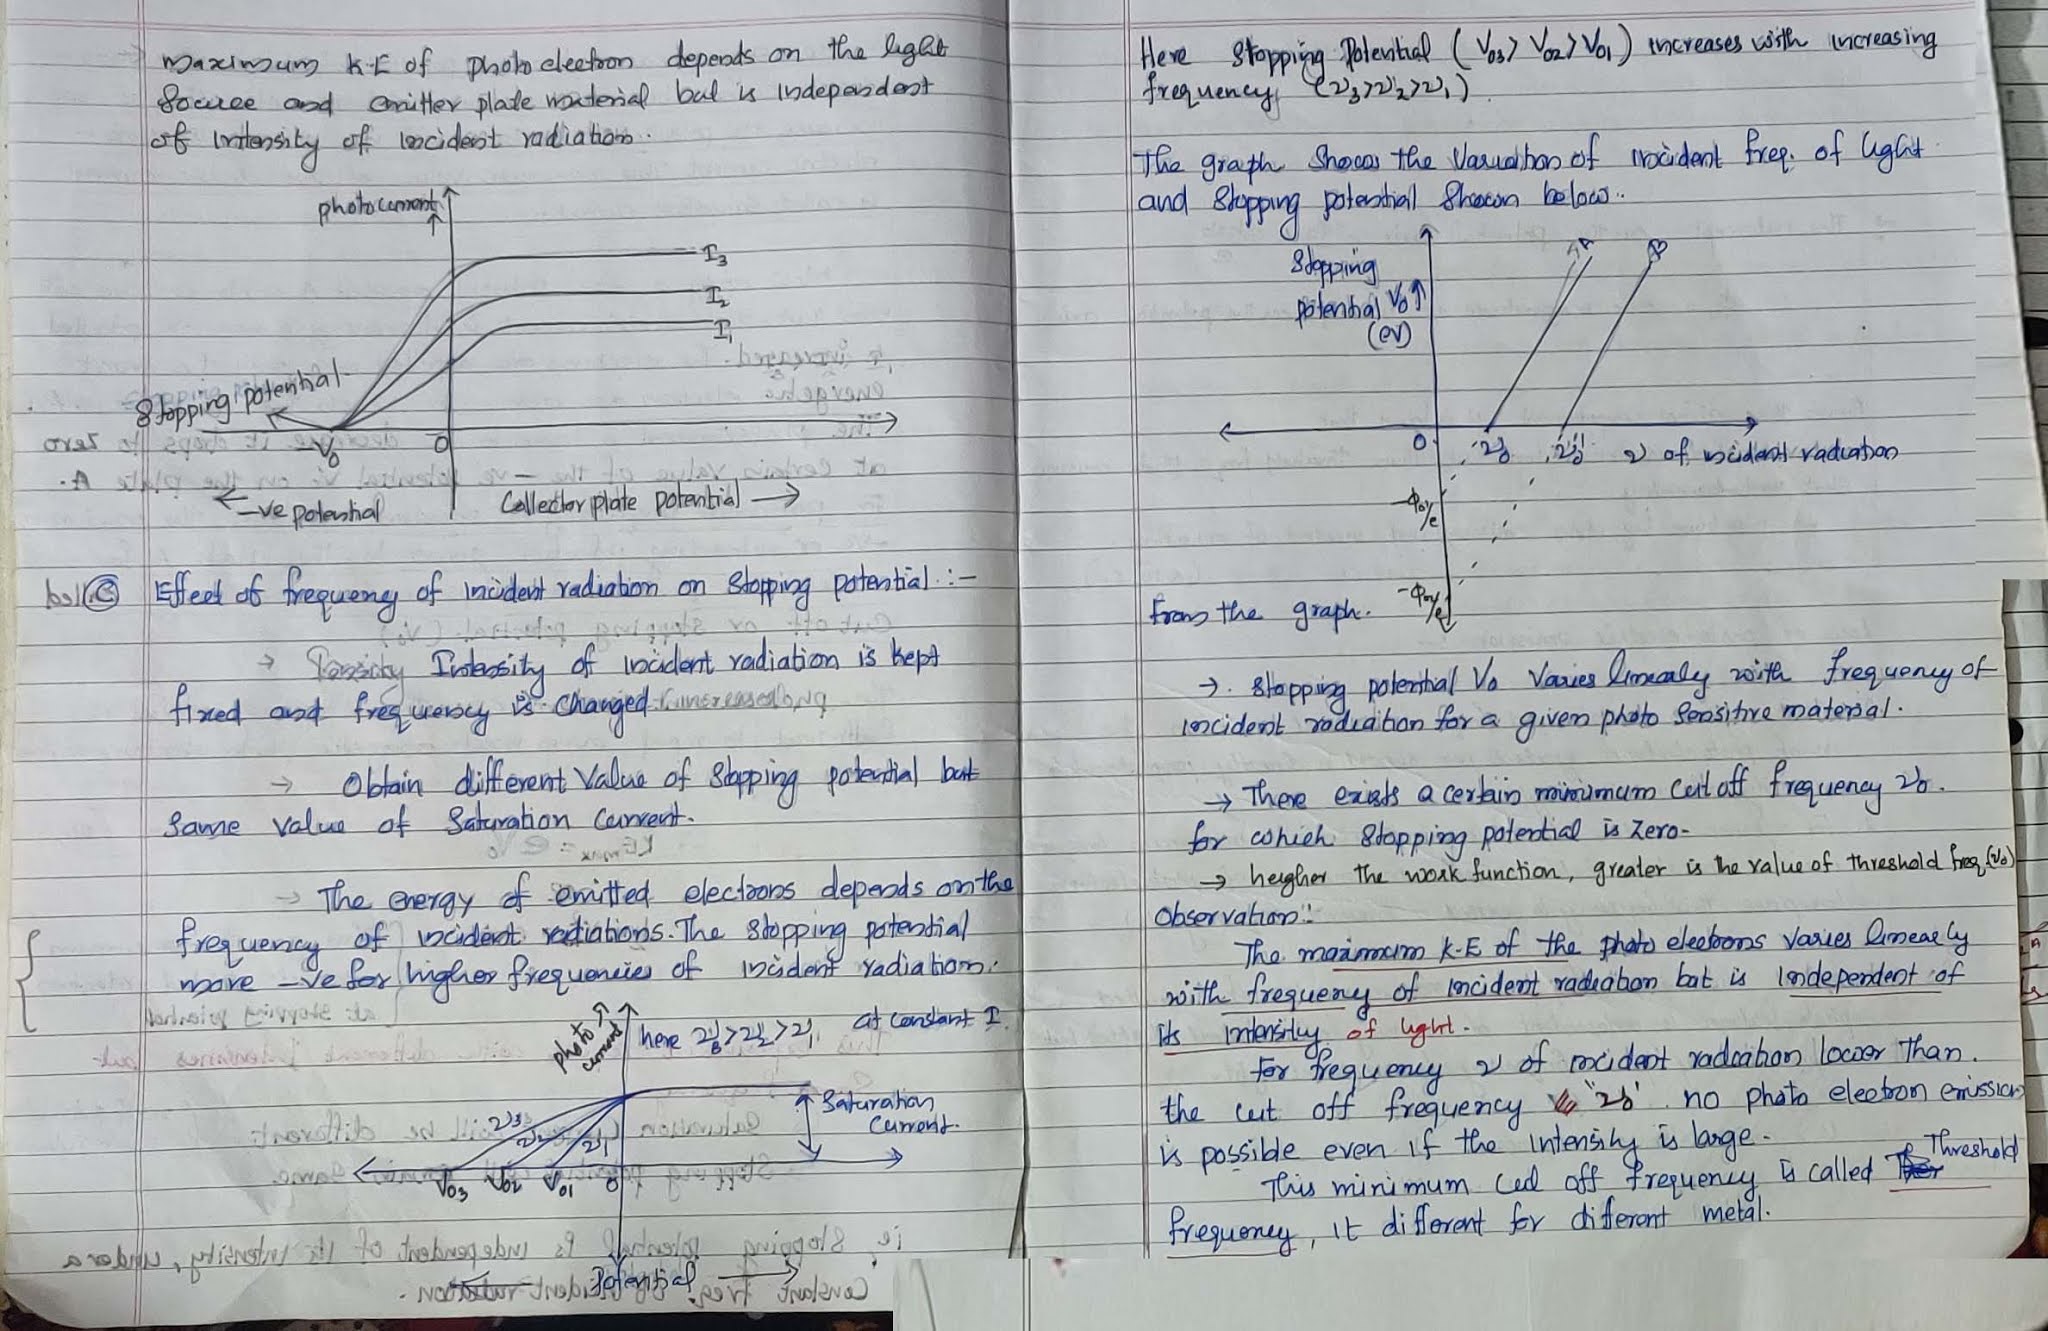 maximum K.E of photo electron depends on the light
source and emitter plate material but is independent
of intensity of incident radiation.
photocurrent
I3
I2
I1
Stopping potential
-V0
0
-ve potential
Collector plate potential
C Effect of frequency of incident radiation on stopping potential :-
→ Intensity of incident radiation is kept
fixed and frequency is changed
→ Obtain different value of stopping potential but
same value of saturation current.
→ The energy of emitted electrons depends on the
frequency of incident radiations. The stopping potential
more -ve for higher frequencies of incident radiation.
photo current
here ν3>ν2>ν1 at constant I.
Saturation
current.
ν3
ν2
ν1
V03 V02 V01 0
Potential
Here stopping potential (V03> V02>V01) increases with increasing
frequency (ν3>ν2>ν1)
The graph shows the variation of incident freq. of light
and stopping potential shown below..
Stopping
potential V0
(eV)
A B
0 ν0 ν0' ν of incident radiation
-ϕ0/e
-ϕ0'/e
from the graph.
→ stopping potential V0 varies linearly with frequency of
incident radiation for a given photo sensitive material.
→ There exists a certain minimum cut off frequency ν0.
for which stopping potential is zero-
→ heigher the work function, greater is the value of threshold freq (ν0)
Observation:
The maximum K-E of the photo electrons varies linearly
with frequency of incident radiation but is independent of
its intensity of light.
For frequency ν of incident radiation lower than.
the cut off frequency 'ν0' no photo electron emission
is possible even if the intensity is large.
This minimum cut off frequency is called Threshold
frequency, it different for different metal.